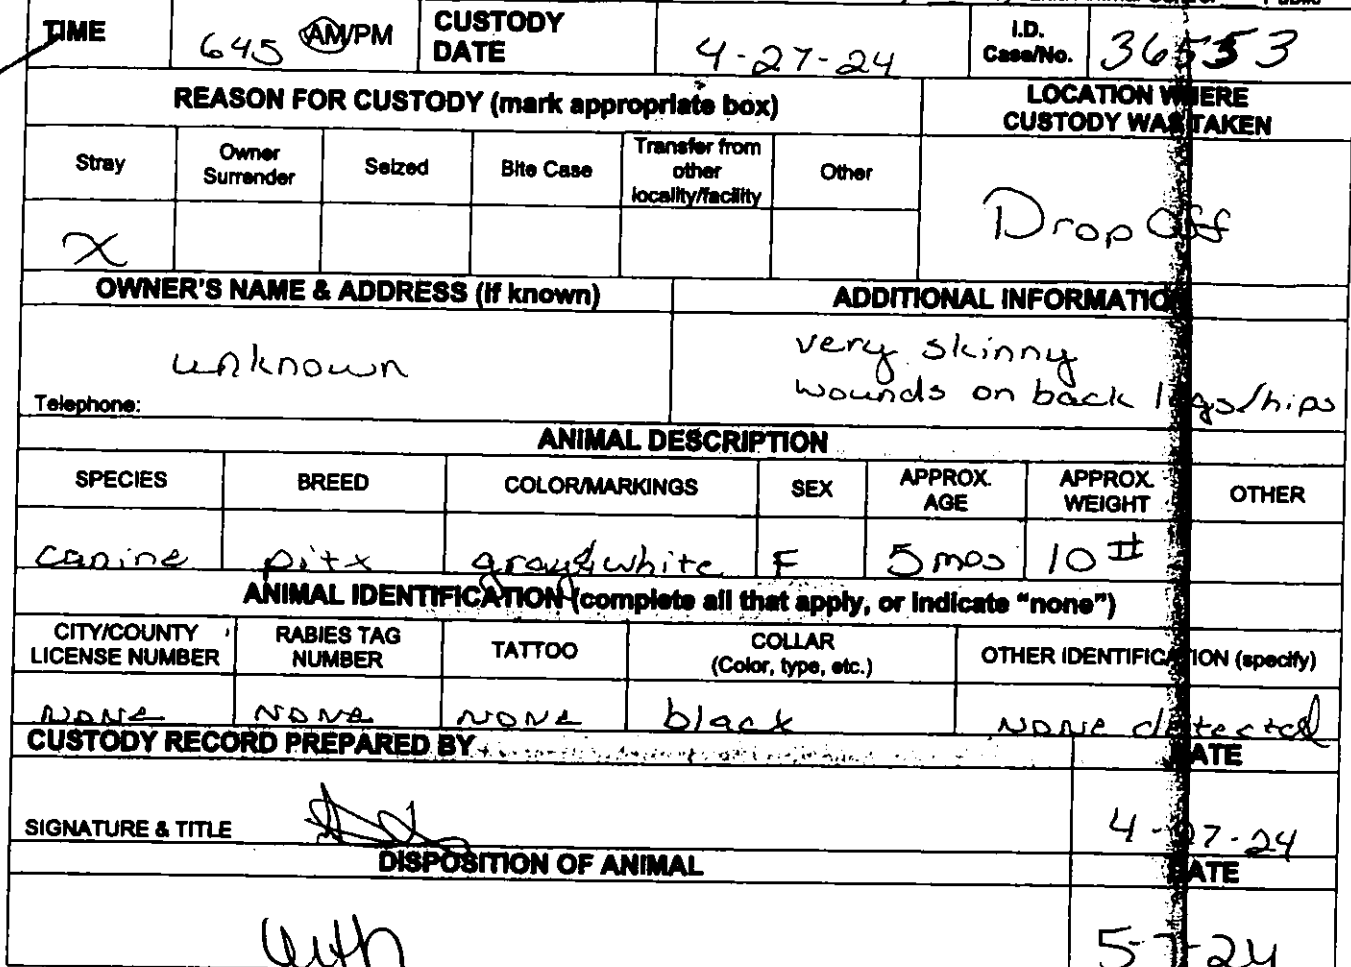 TIME 645 AM/PM CUSTODY DATE 4-27-24 I.D. Case/No. 36553
REASON FOR CUSTODY (mark appropriate box) LOCATION WHERE CUSTODY WAS TAKEN
Stray Owner Surrender Seized Bite Case Transfer from other locality/facility Other
X Drop Off
OWNER'S NAME & ADDRESS (if known) ADDITIONAL INFORMATION
unknown very skinny
wounds on back legs/hips
Telephone:
ANIMAL DESCRIPTION
SPECIES BREED COLOR/MARKINGS SEX APPROX. AGE APPROX. WEIGHT OTHER
canine pitx gray&white F 5 mos 10 #
ANIMAL IDENTIFICATION (complete all that apply, or indicate "none")
CITY/COUNTY LICENSE NUMBER RABIES TAG NUMBER TATTOO COLLAR (Color, type, etc.) OTHER IDENTIFICATION (specify)
NONE NONE NONE black NONE detected
CUSTODY RECORD PREPARED BY DATE
SIGNATURE & TITLE 4-27-24
DISPOSITION OF ANIMAL DATE